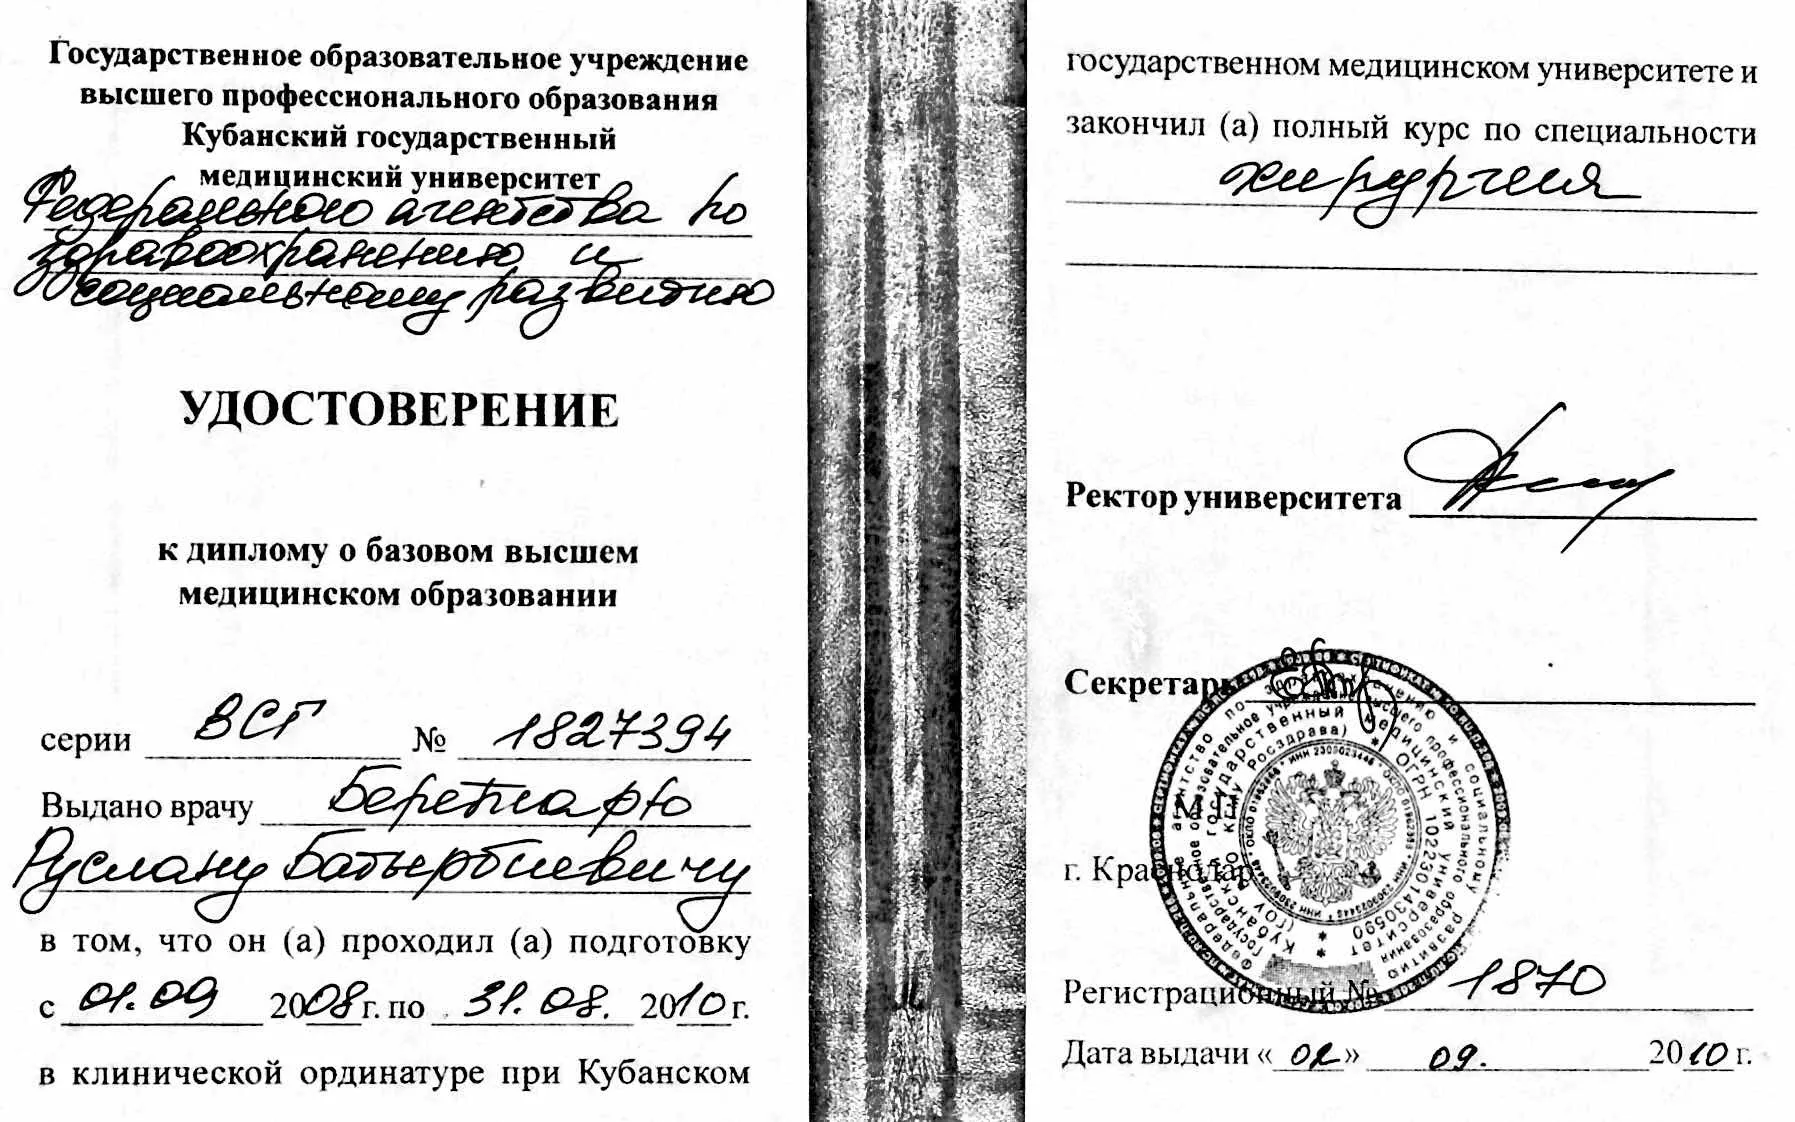 Государственное образовательное учреждение
высшего профессионального образования
Кубанский государственный
медицинский университет
Федерального агентства по
здравоохранению и
социальному развитию
УДОСТОВЕРЕНИЕ
к диплому о базовом высшем
медицинском образовании
серии ВСГ № 1827394
Выдано врачу Беретарю
Руслану Батырбиевичу
в том, что он (а) проходил (а) подготовку
с 01.09 2008 г. по 31.08. 2010 г.
в клинической ординатуре при Кубанском
государственном медицинском университете и
закончил (а) полный курс по специальности
хирургия
Ректор университета
Секретарь
М.П.
г. Краснодар
Регистрационный № 1870
Дата выдачи «02» 09. 2010 г.
Федеральное агентство по здравоохранению и социальному развитию
Государственное образовательное учреждение высшего профессионального образования
Кубанский государственный медицинский университет
(ГОУ ВПО КГМУ Росздрава) * ОГРН 1022301430590